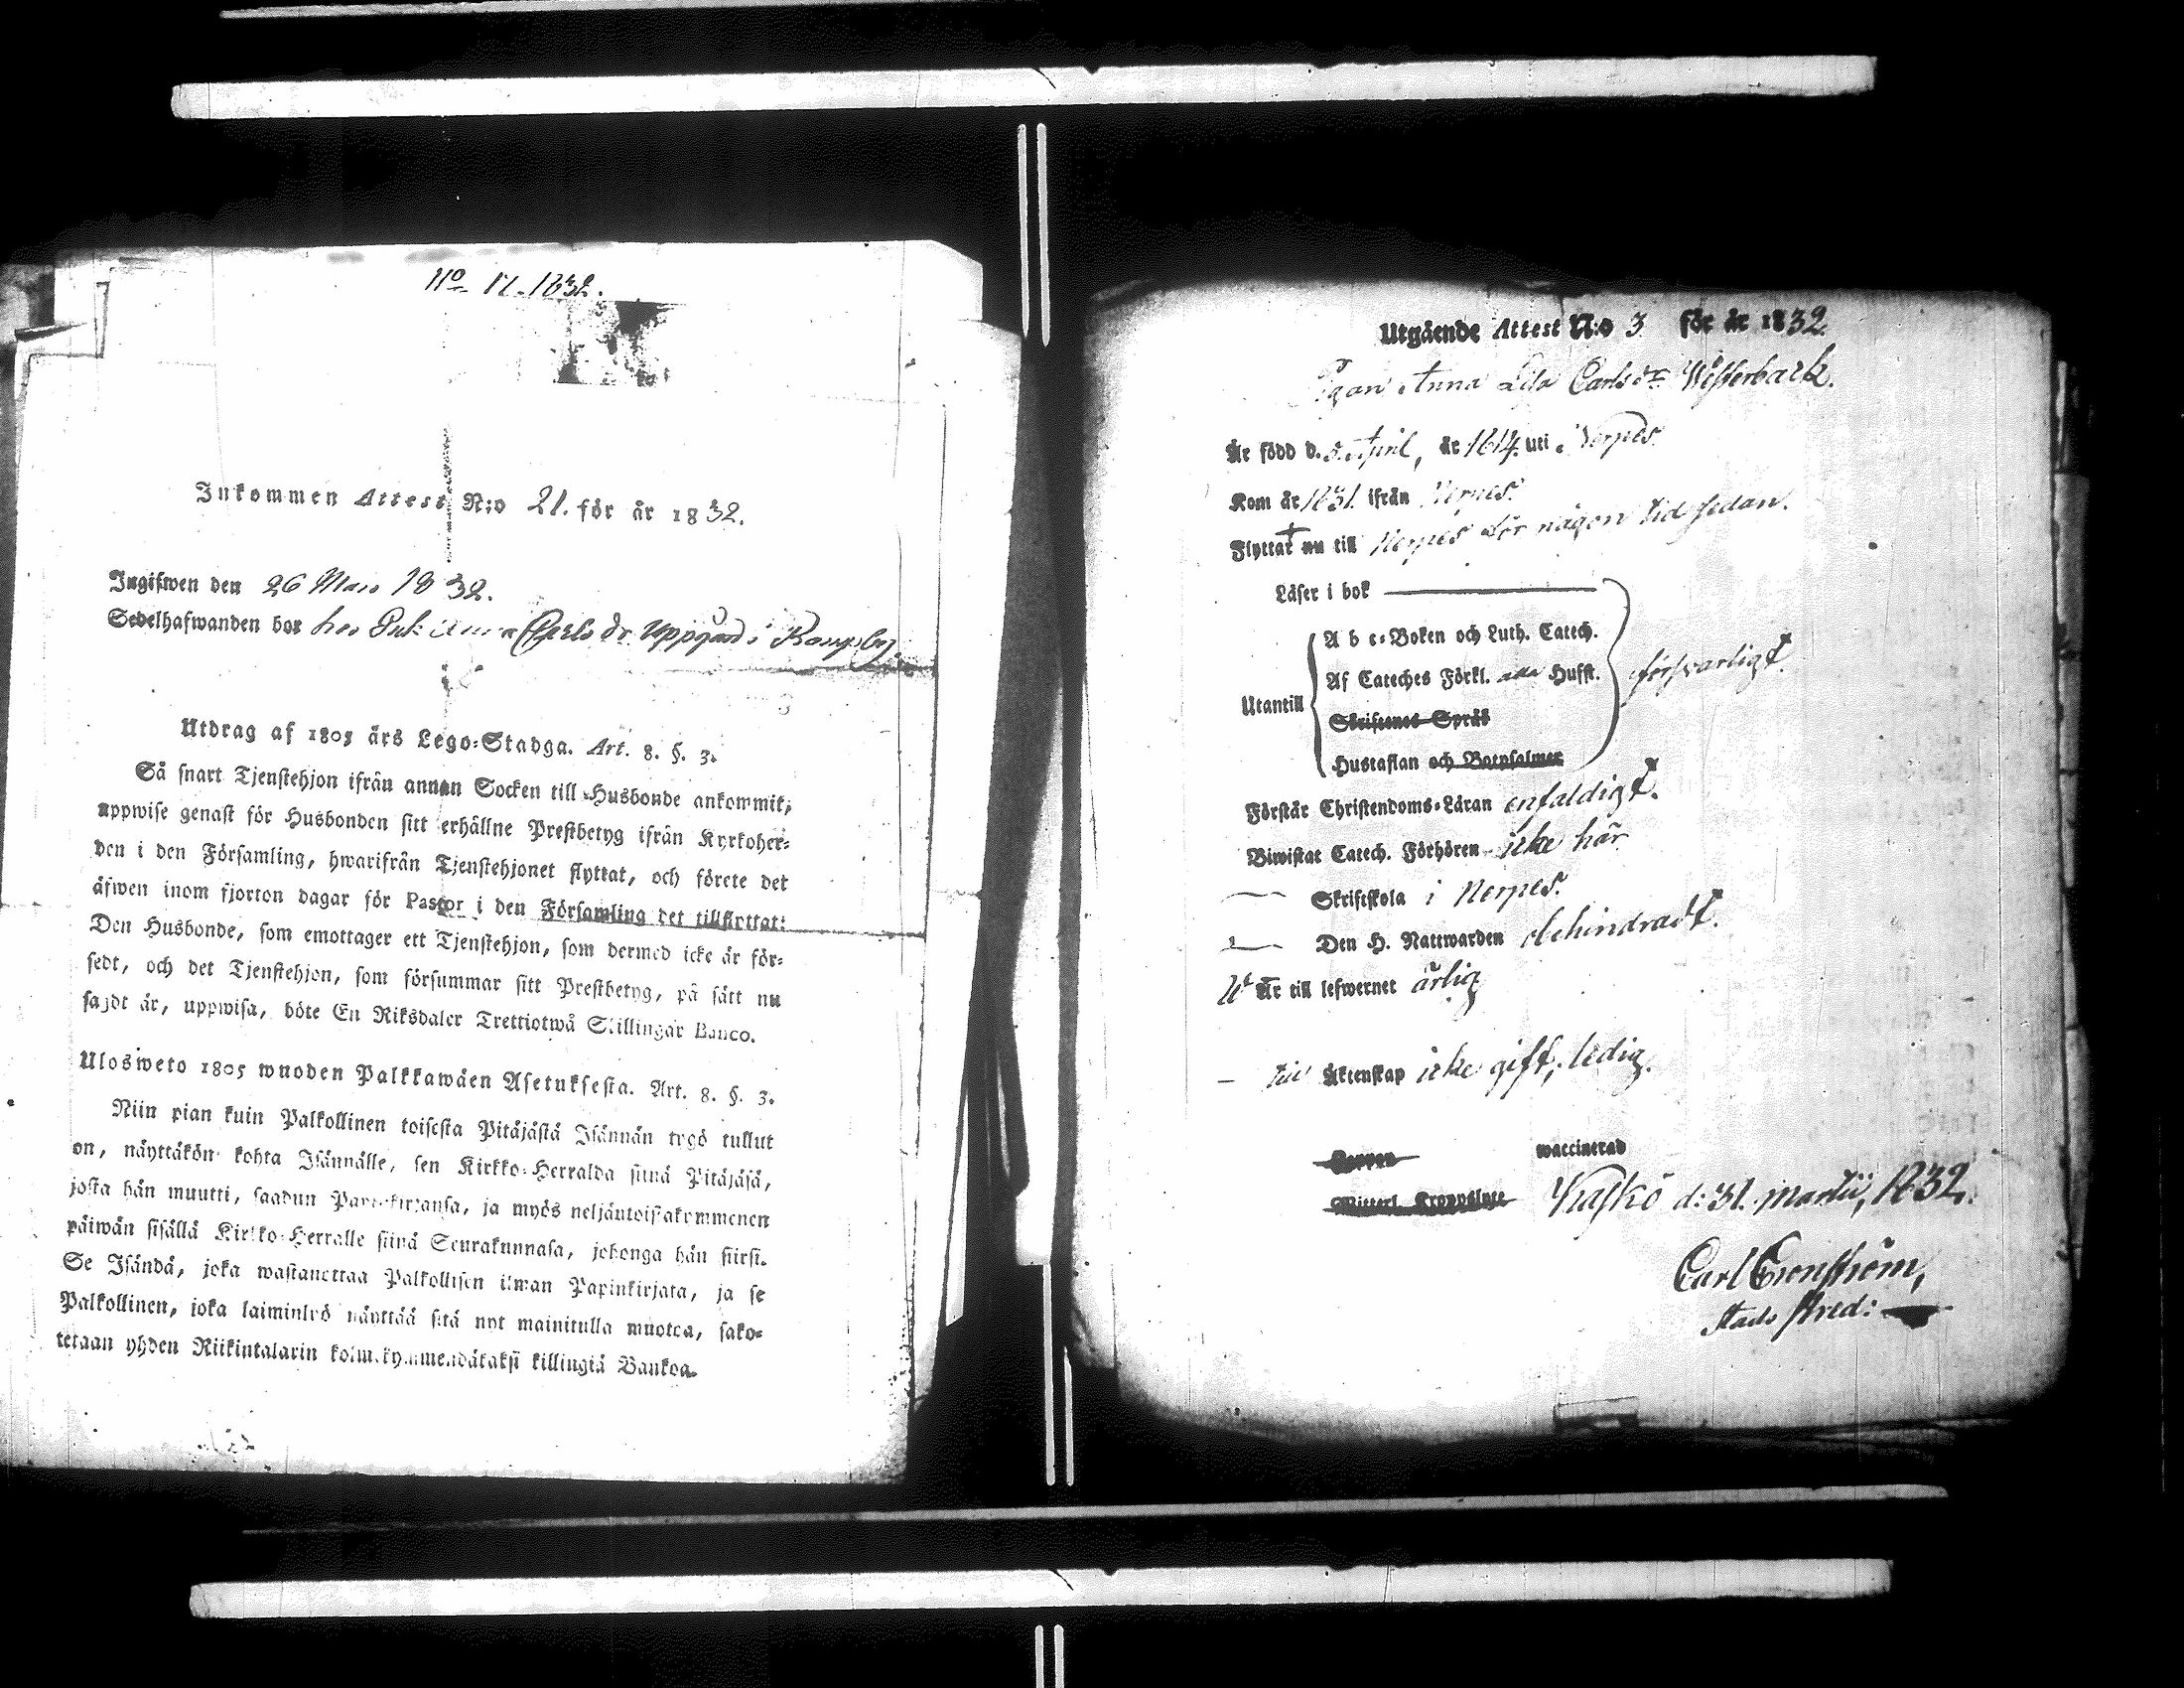 No 17. 1832.
Inkommen Attest N:o 21. för år 1832.
Ingifwen den 26 Mars 1832.
Sedelhafwanden bor hos Enk Anna Carls dr Uppgård i
Utdrag af 1805 års Lego-Stadga. Art. 8. §. 3.
Så snart Tjenstehjon ifrån annan Socken till Husbonde ankommit,
uppwise genast för Husbonden sitt erhållne Prestbetyg ifrån Kyrkoher-
den i den Församling, hwarifrån Tjenstehjonet flyttat, och förete det
äfwen inom fjorton dagar för Pastor i den Församling det tillflyttat:
Den Husbonde, som emottager ett Tjenstehjon, som dermed icke är för-
sedt, och det Tjenstehjon, som försummar sitt Prestbetyg, på sätt nu
sagdt är, uppwisa, böte En Riksdaler Trettiotwå Skillingar Banco.
Ulosweto 1805 wuoden Palkkawäen Asetuksesta. Art. 8. §. 3.
Niin pian kuin Palkollinen toisesta Pitäjästä Isännän tygö tullut
on, näyttäkön kohta Isännälle, sen Kirkko-Herralda siinä Pitäjäsä,
josta hän muutti, saadun Papinkirjansa, ja myös neljäntoistakymmenen
päiwän sisällä Kirkko-Herralle siinä Seurakunnasa, johonga hän siirsi.
Se Isändä, joka wastanottaa Palkollisen ilman Papinkirjata, ja se
Palkollinen, joka laiminlyö näyttää sitä nyt mainitulla muotoa, sako-
tetaan yhden Riikintalarin kolmekymmendäkaksi killingiä Bankoa.
Utgående Attest N:o 3 för år 1832.
Pigan Anna Lisa Carlsdr Westerback.
Är född d. 5. April, år 1814. uti Nerpes.
Kom år 1831. ifrån Nerpes.
Flyttat nu till Nerpes för någon tid sedan.
Läser i bok
A b c-Boken och Luth. Catech.
Af Cateches Förkl. Husft.
försvarligt.
Utantill
Skriftenes Språk
Hustaflan och Botpsalmer
Förstår Christendoms-Läran enfaldigt.
Biwistat Catech. Förhören icke här
Skriftskola i Nerpes.
Den H. Nattwarden obehindradt.
Är till lefwernet ärlig
till Äktenskap icke gift, ledig.
Koppen waccinerad
Kaskö d: 31. Martii, 1832.
Carl Enström,